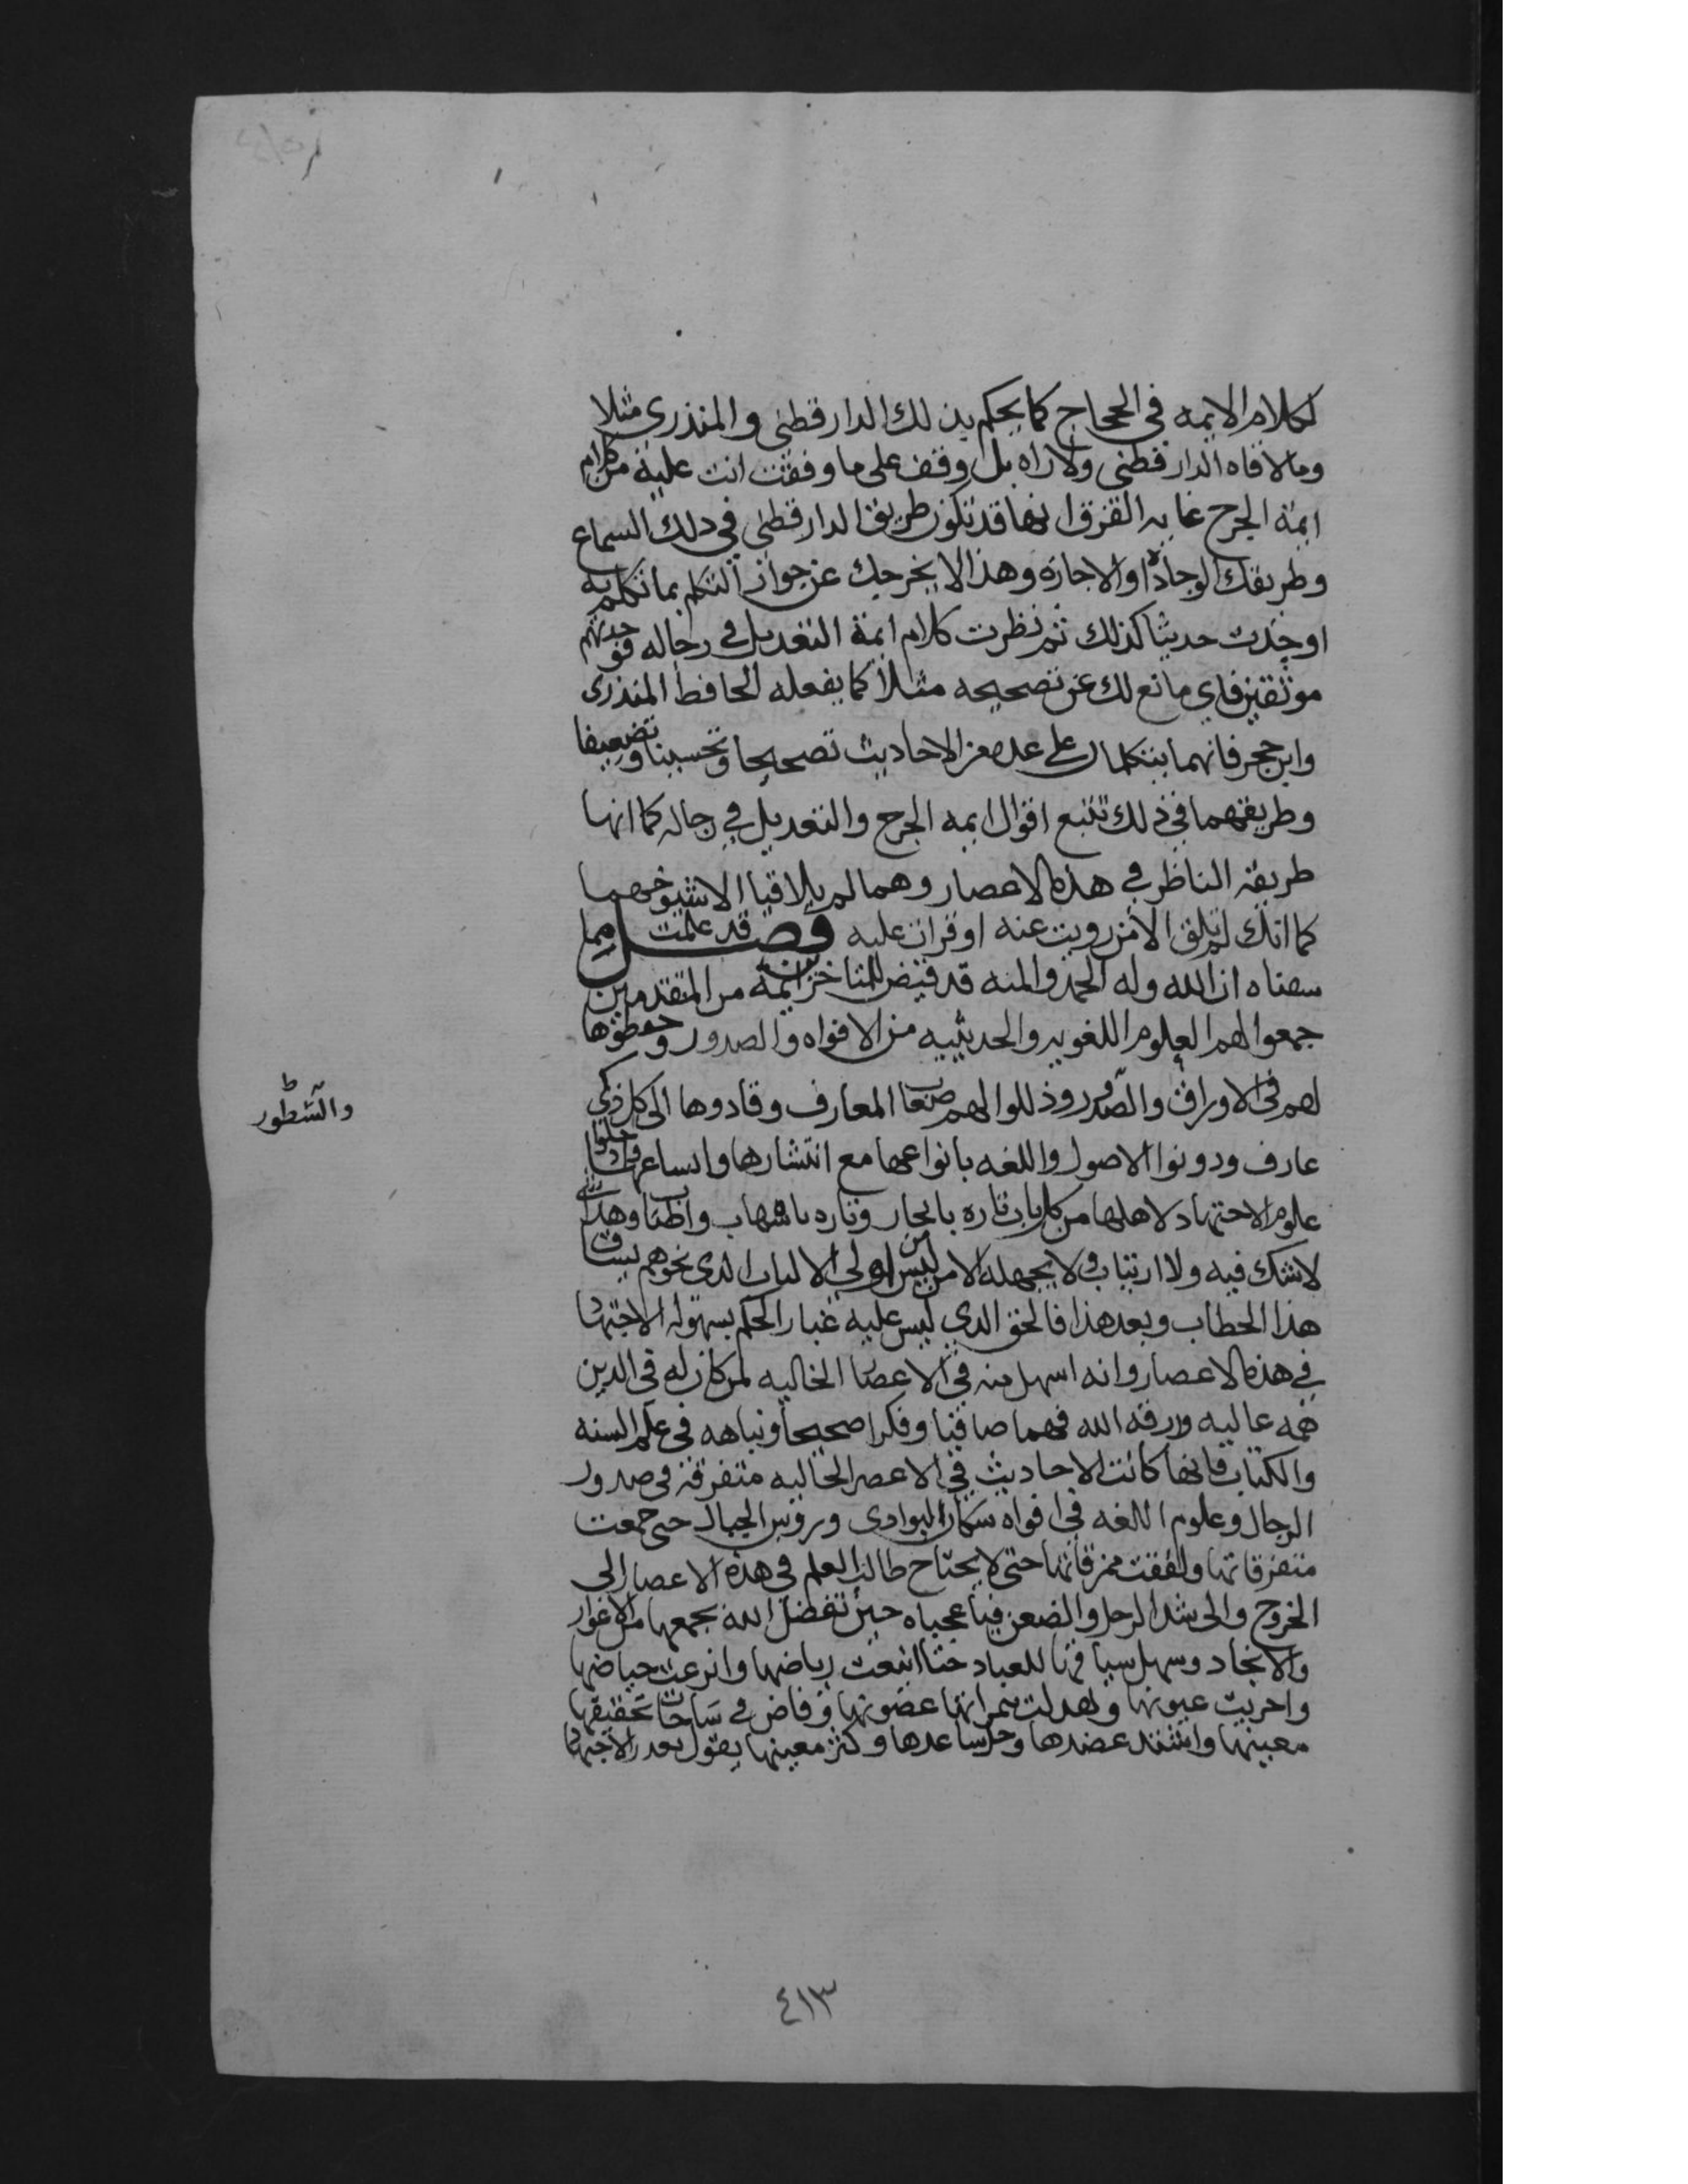 لكلام الايمه في الحجاج كما يحكم بذلك الدارقطني والمنذري مثلا
وما لاقاه الدارقطني ولا راه بل وقف على ما وقفت انت عليه من كلام
ايمة الجرح غايه الفرق انها قد تكون طريق الدارقطني في ذلك السماع
وطريقك الوجادة او الاجازه وهذا لا يخرجك عن جواز التكلم بما تكلم به
او وجدت حديثا كذلك ثم نظرت كلام ايمة التعديل في رجاله فوجدتهم
موثقين فاي مانع لك عن تصحيحه مثلا كما يفعله الحافظ المنذري
وابن حجر فانهما يتكلمان على عده من الاحاديث تصحيحا وتحسينا وتضعيفا
وطريقهما في ذلك تتبع اقوال ايمه الجرح والتعديل في رجاله كما انها
طريقه الناظر في هذه الاعصار وهما لم يلاقيا الا شيوخهما
كما انك لم تلق الا من رويت عنه او قرات عليه فصل قد علمت مما
سقناه ان الله وله الحمد والمنه قد قيض للمتاخرين ايمة من المتقدمين
جمعوا لهم العلوم اللغويه والحديثيه من الافواه والصدور وحفظوها
لهم في الاوراق والصدور وذللوا لهم صعاب المعارف وقادوها الى كل ذكي
والسطور
عارف ودونوا الاصول واللغه بانواعها مع انتشارها واتساعها
علوم الاجتهاد لاهلها من كل باب تاره بايجاز وتاره باسهاب واطناب وهذا
لا شك فيه ولا ارتياب ولا يجهله الا من ليس من اولي الالباب الذي نحوهم يساق
هذا الخطاب وبعد هذا فالحق الذي ليس عليه غبار الحكم بسهوله الاجتهاد
في هذه الاعصار وانه اسهل منه في الاعصار الخاليه لمن كان له في الدين
همه عاليه ورزقه الله فهما صافيا وفكرا صحيحا ونباهه في علم السنه
والكتاب فانها كانت الاحاديث في الاعصر الخاليه متفرقة في صدور
الرجال وعلوم اللغه في افواه سكان البوادي ورؤس الجبال حتى جمعت
متفرقاتها ولفقت ممزقاتها حتى لا يحتاج طالب العلم في هذه الاعصار الى
الخروج والى شد الرحل والضعن فيا عجباه حين تفضل الله بجمعها من الاغوار
والانجاد وسهل للعباد اينعت رياضها واترعت حياضها
واجريت عيونها وتهدلت بثمراتها غصونها وفاض في ساحات تحقيقها
معينها واشتد عضدها وساعدها وكثر معينها يقول الاجتهاد
٤١٣